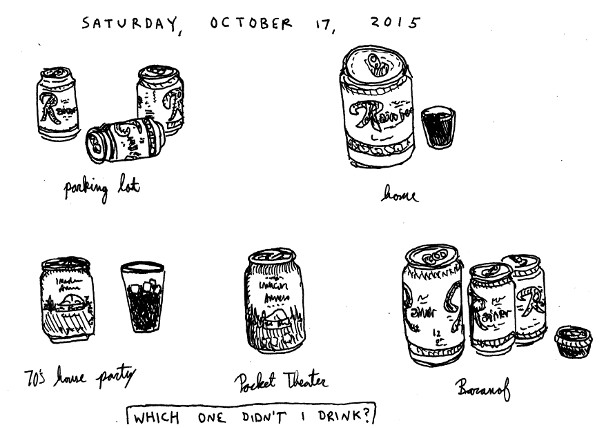 SATURDAY, OCTOBER 17, 2015
R
Rainier
R
Rainier
parking lot
home
70's house party
Pocket Theater
Rainier
12
Rainier
R
Baranof
WHICH ONE DIDN'T I DRINK?